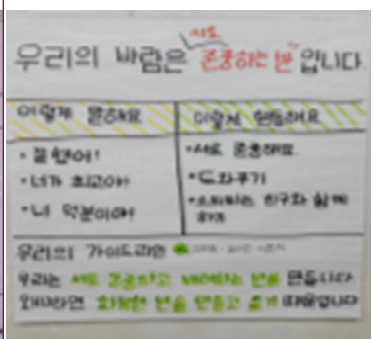 서로
우리의 바람은 "존중하는 반"입니다
이렇게 말해요
이렇게 행동해요
• 잘했어!
• 너가 최고야!
• 너 덕분이야!
• 서로 존중해요.
• 도와주기
• 소외되는 친구와 함께
하기
우리의 가이드라인
우리는 서로 존중하고 배려하는 반을 만듭니다
왜냐하면 화목한 반을 만들고 싶기 때문입니다